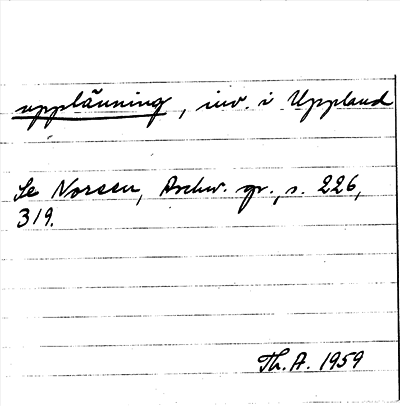 upplänning, inv. i Uppland
Se Noreen, Aschw. gr., s. 226,
319.
Th. A. 1959